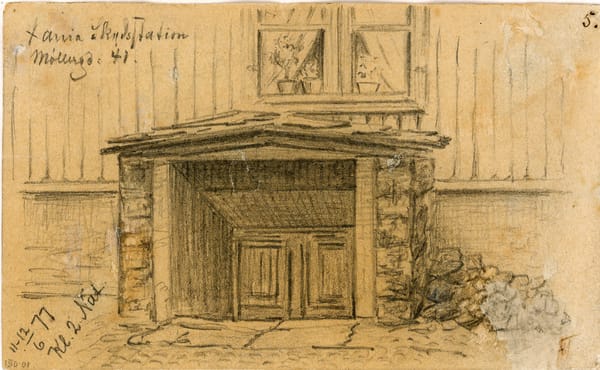 Xania Skydsstation
Møllergd: 41.
5.
11-12/6 77
Kl. 2. Nat